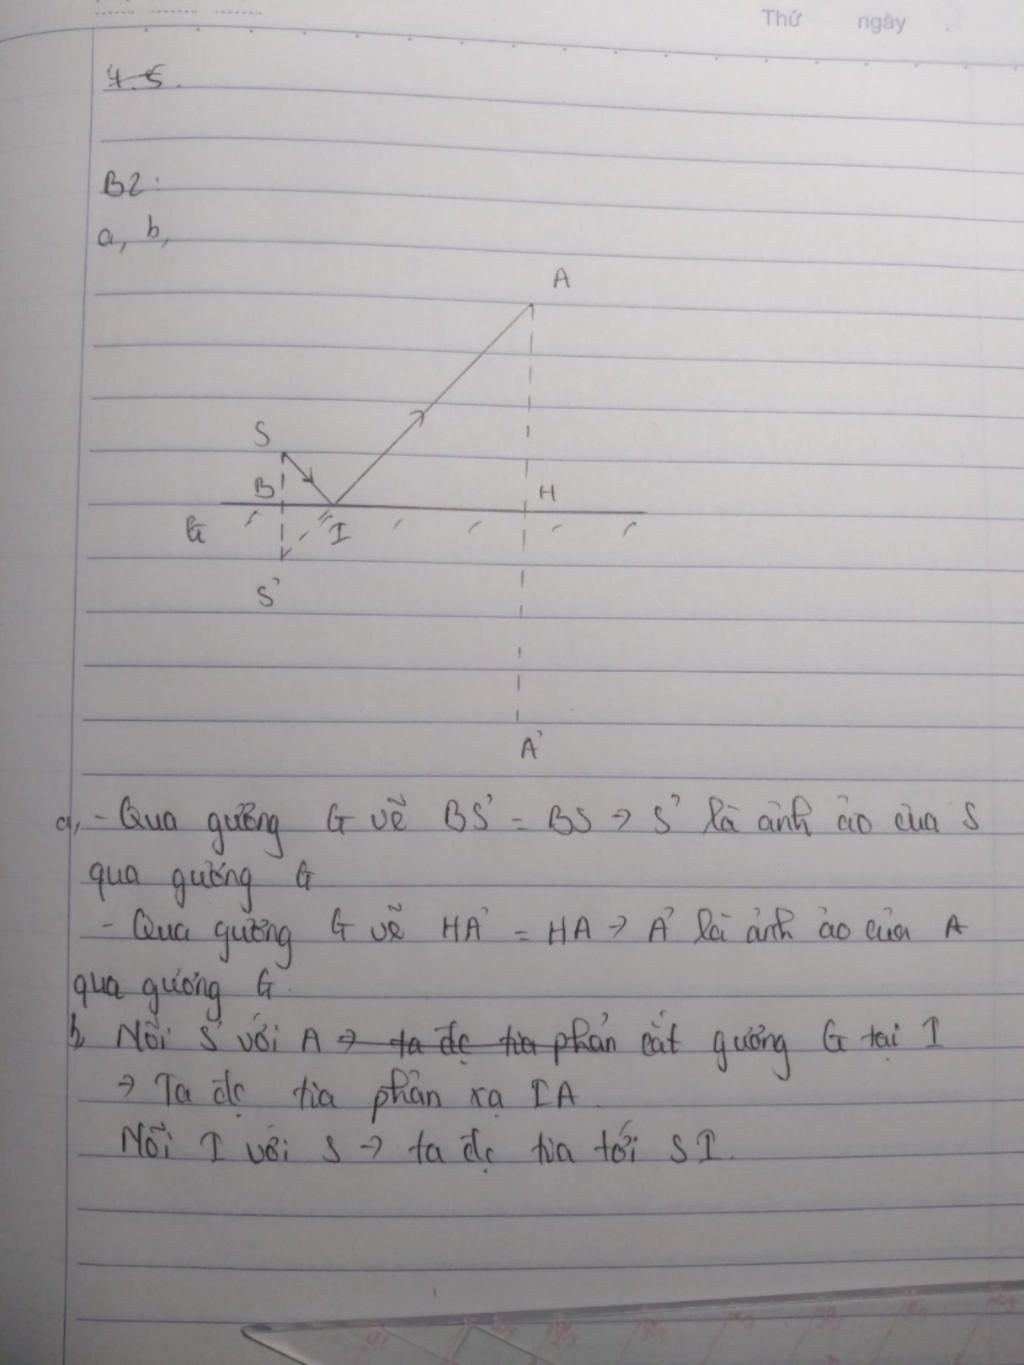 Thứ ngày
4.5.
B2:
a, b,
A
S
B
H
G
I
S'
A'
a, - Qua gương G vẽ BS' = BS → S' là ảnh ảo của S
qua gương G
- Qua gương G vẽ HA' = HA → A' là ảnh ảo của A
qua gương G.
b, Nối S' với A → ta đc tia phản cắt gương G tại I
→ Ta đc tia phản xạ IA.
Nối I với S → ta đc tia tới SI.